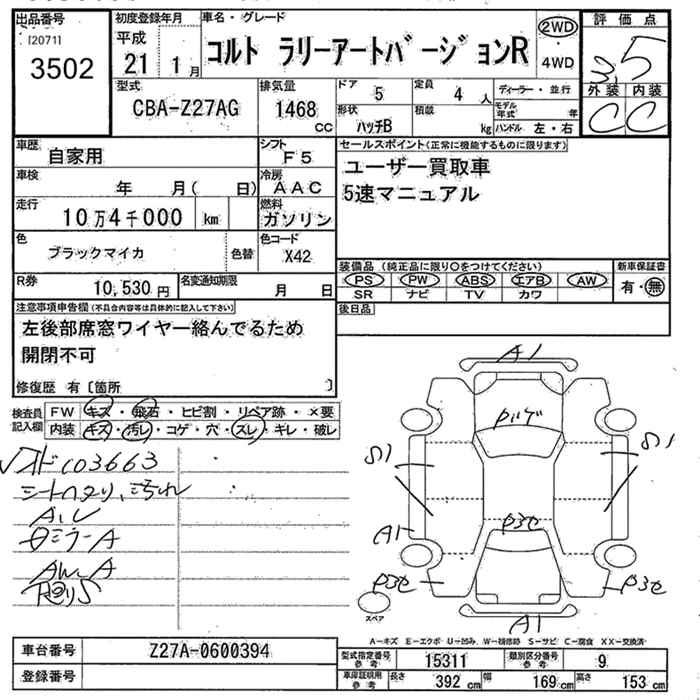 出品番号
[2071]
3502
初度登録年月
平成
21 1月
車名・グレード
コルト ラリーアートバージョンR
2WD
・
4WD
評価点
3.5
外装 内装
C C
型式
CBA-Z27AG
排気量
1468 cc
ドア
5
定員
4 人
形状
ハッチB
積載
kg
ディーラー・並行
モデル年式 年
ハンドル 左・右
車歴
自家用
シフト
F5
車検
年 月( 日)
冷房
AAC
走行
10万4千000 km
燃料
ガソリン
色
ブラックマイカ
色替
色コード
X42
R券
10,530円
名変通知期限
月 日
セールスポイント(正常に機能するものに限ります)
ユーザー買取車
5速マニュアル
装備品(純正品に限り○をつけてください)
PS PW ABS エアB AW
SR ナビ TV カワ
新車保証書
有・無
後日品
注意事項申告欄(不具合内容等は具体的に記入して下さい)
左後部席窓ワイヤー絡んでるため
開閉不可
修復歴 有〔箇所 〕
検査員
記入欄
FW キズ・飛石・ヒビ割・リペア跡・×要
内装 キズ・汚レ・コゲ・穴・スレ・キレ・破レ
103663
A1
S1
S1
A1
A1
スペア
A-キズ E-エクボ U-凹み W-補修跡 S-サビ C-腐食 XX-交換済
車台番号
Z27A-0600394
登録番号
型式指定番号
参考
15311
類別区分番号
参考
9
車庫証明用
参考
長さ 392 cm 幅 169 cm 高さ 153 cm